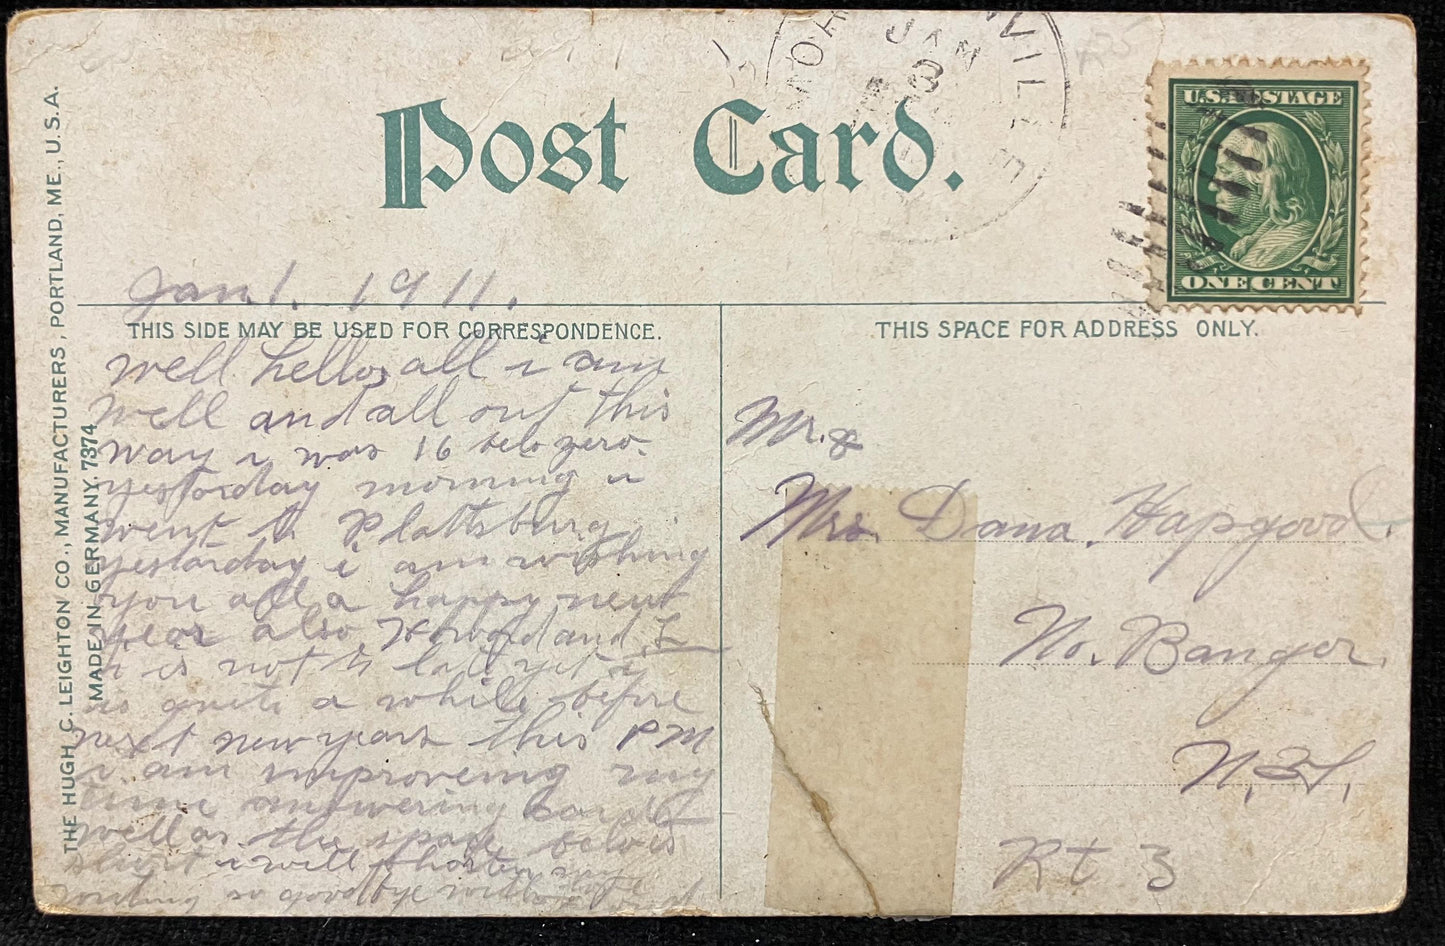 Post Card.
JAN
3
U.S. POSTAGE
ONE CENT
THE HUGH C. LEIGHTON CO., MANUFACTURERS, PORTLAND, ME., U.S.A.
MADE IN GERMANY. 7374
Jan. 1. 1911.
THIS SIDE MAY BE USED FOR CORRESPONDENCE.
well hello, all i am
well and all out this
way i was 16 belo zero.
yestorday morning i
went to Plattsburg
yestarday i am wishing
you all a happy new
year also Howard and
i is not to late yet i
is quite a while before
next new years this PM
i am improveing my
time answering cards
well as the space below
short i will shorten my
writing so good bye
THIS SPACE FOR ADDRESS ONLY.
Mr. &
Mrs. Dana. Hapgood.
No. Banger.
N. Y.
Rt 3